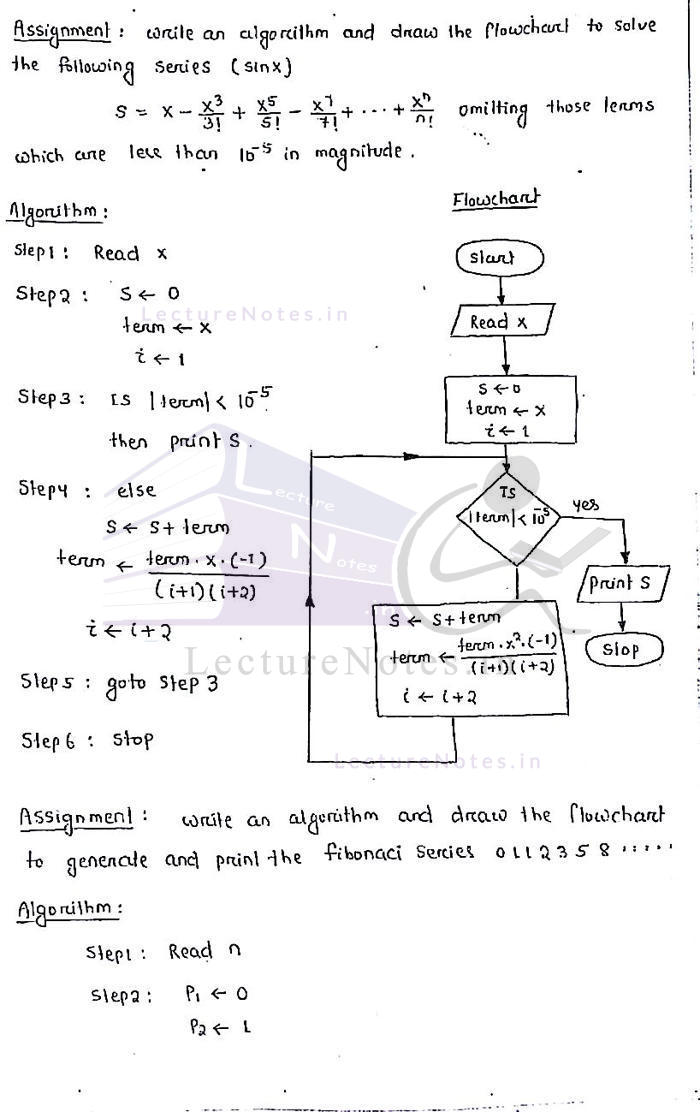 Assignment : write an algorithm and draw the flowchart to solve
the following series (sinx)
S = x - x³/3! + x⁵/5! - x⁷/7! + ... + xⁿ/n! omitting those terms
which are less than 10⁻⁵ in magnitude.
Algorithm :
Step1 : Read x
Step2 : S ← 0
term ← x
i ← 1
Step3 : Is |term| < 10⁻⁵
then print S.
Step4 : else
S ← S + term
term ← term . x . (-1) / (i+1)(i+2)
i ← i+2
Step5 : goto step 3
Step6 : stop
Flowchart
Start
Read x
S ← 0
term ← x
i ← 1
Is
|term| < 10⁻⁵
yes
print S
Stop
S ← S + term
term ← term . x² . (-1) / (i+1)(i+2)
i ← i+2
LectureNotes.in
Lecture
Notes
LectureNotes.in
LectureNotes.in
Assignment : write an algorithm and draw the flowchart
to generate and print the fibonaci series 0 1 1 2 3 5 8 ......
Algorithm :
Step1 : Read n
Step2 : P₁ ← 0
P₂ ← 1